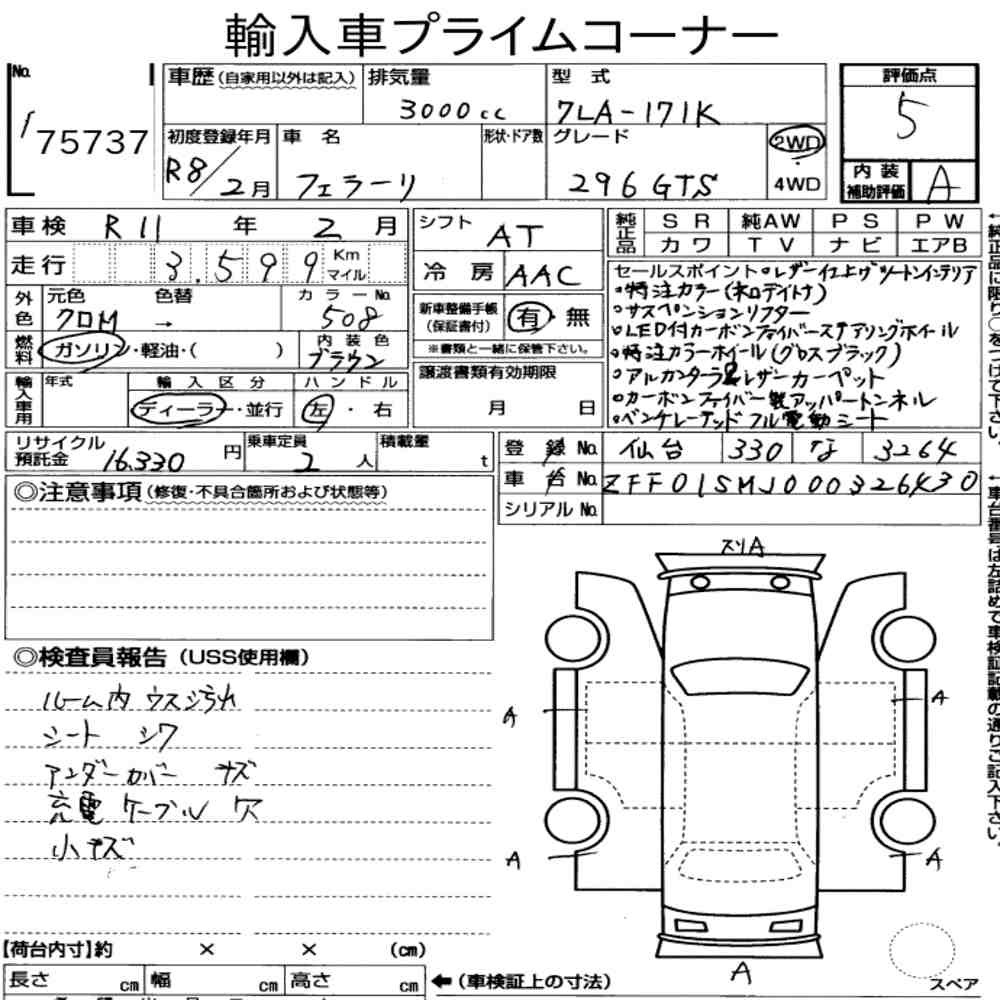 輸入車プライムコーナー
No. 175737
車歴(自家用以外は記入) 排気量 3000cc 型式 7LA-171K 評価点 5
初度登録年月 R8/2月 車名 フェラーリ 形状・ドア数 グレード 296 GTS 2WD・4WD 内装補助評価 A
車検 R11年2月
走行 3.599 Km マイル
シフト AT
冷房 AAC
純正品 SR 純AW PS PW
カワ TV ナビ エアB
外色 元色 クロM 色替 → カラーNo. 508
燃料 ガソリン・軽油・( ) 内装色 ブラウン
新車整備手帳(保証書付) 有 無
※書類と一緒に保管下さい。
輸入車用 年式 輸入区分 ディーラー・並行 ハンドル 左・右
譲渡書類有効期限 月 日
セールスポイント・レザー仕上げシートインテリア
・特注カラー(ネロデイトナ)
・サスペンションリフター
・LED付カーボンファイバーステアリングホイール
・特注カラーホイール(グロスブラック)
・アルカンターラ&レザーカーペット
・カーボンファイバー製アッパートンネル
・ベンチレーテッドフル電動シート
←純正品に限り○をつけて下さい。
リサイクル預託金 16,330円 乗車定員 2人 積載量 t
登録No. 仙台 330 な 3264
車台No. ZFF01SMJ000326430
シリアルNo.
←車台番号は左詰めで車検証記載の通りご記入下さい。
◎注意事項(修復・不具合箇所および状態等)
◎検査員報告(USS使用欄)
ルーム内 ウスジラれ
シート シワ
アンダーカバー キズ
充電ケーブル 欠
小キズ
スリA
A
A
A
A
A
【荷台内寸】約 × × (cm)
長さ cm 幅 cm 高さ cm ←(車検証上の寸法)
スペア